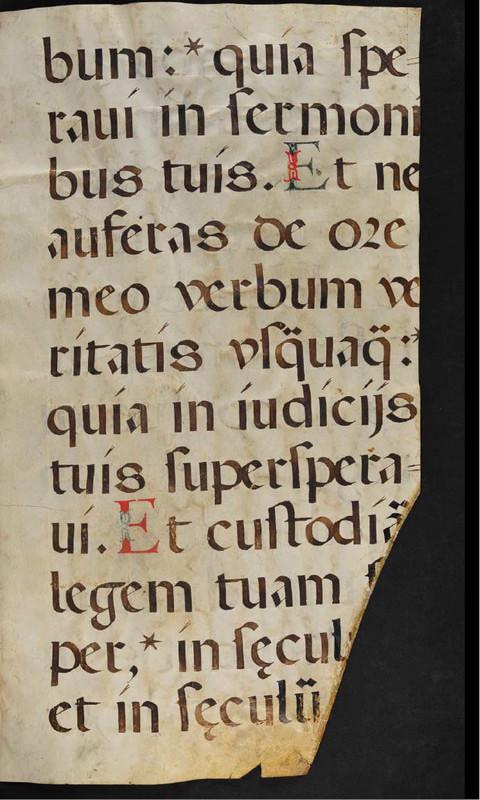 bum:* quía ſpe-
rauí in ſermoni
bus tuís. Et ne
auferas de ore
meo verbum ve
ritatís vſq̈uaq̈:*
quía in iudicijs
tuís ſuperſpera-
uí. Et cuſtodiā
legem tuam
per,* in ſęcul
et ín ſęculū